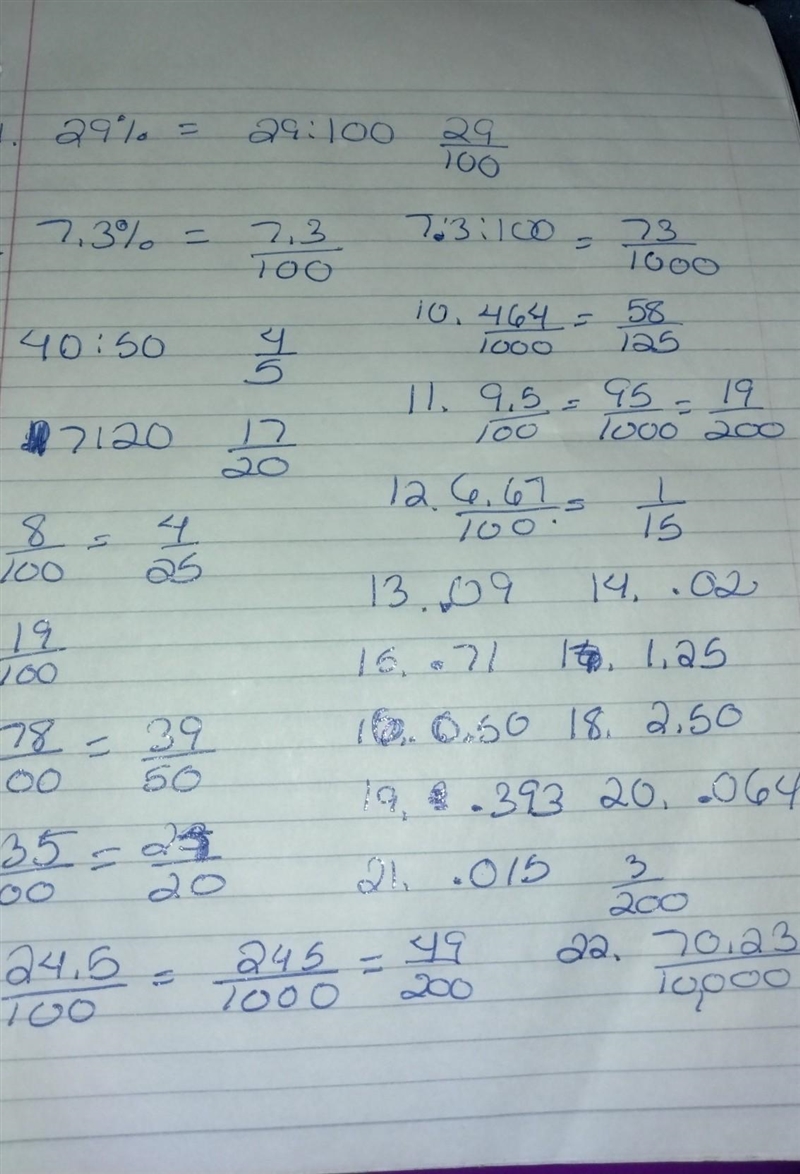 1. 29% = 29:100 29/100
7.3% = 7.3/100 7.3:100 = 73/1000
10. 464/1000 = 58/125
40:50 4/5
11. 9.5/100 = 95/1000 = 19/200
7120 17/20
12. 6.67/100. = 1/15
8/100 = 4/25
13. .09 14. .02
19/100
15. .71 1 . 1.25
78/00 = 39/50
1 . 0.50 18. 2.50
19. .393 20. .064
35/00 = 2 /20
21. .015 3/200
24.5/100 = 245/1000 = 49/200 22. 70.23/10,000